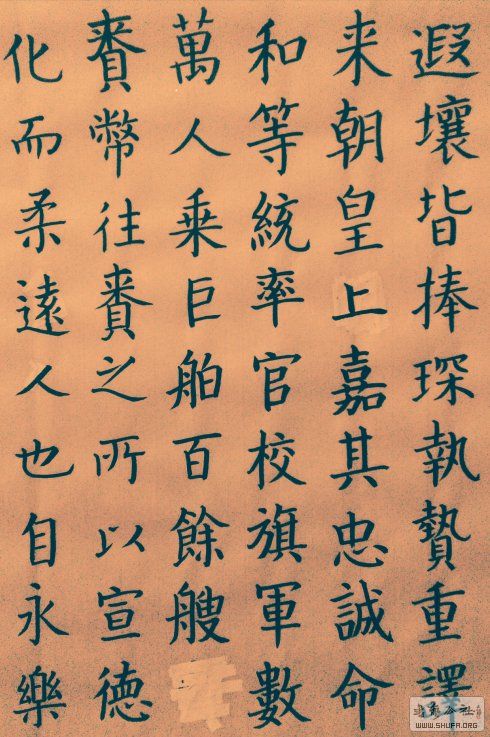 遐壤皆捧琛執贄重譯
来朝皇上嘉其忠誠命
和等統率官校旗軍數
萬人乗巨舶百餘艘
賚幣往賚之所以宣德
化而柔遠人也自永樂
WWW.SHUFA.ORG